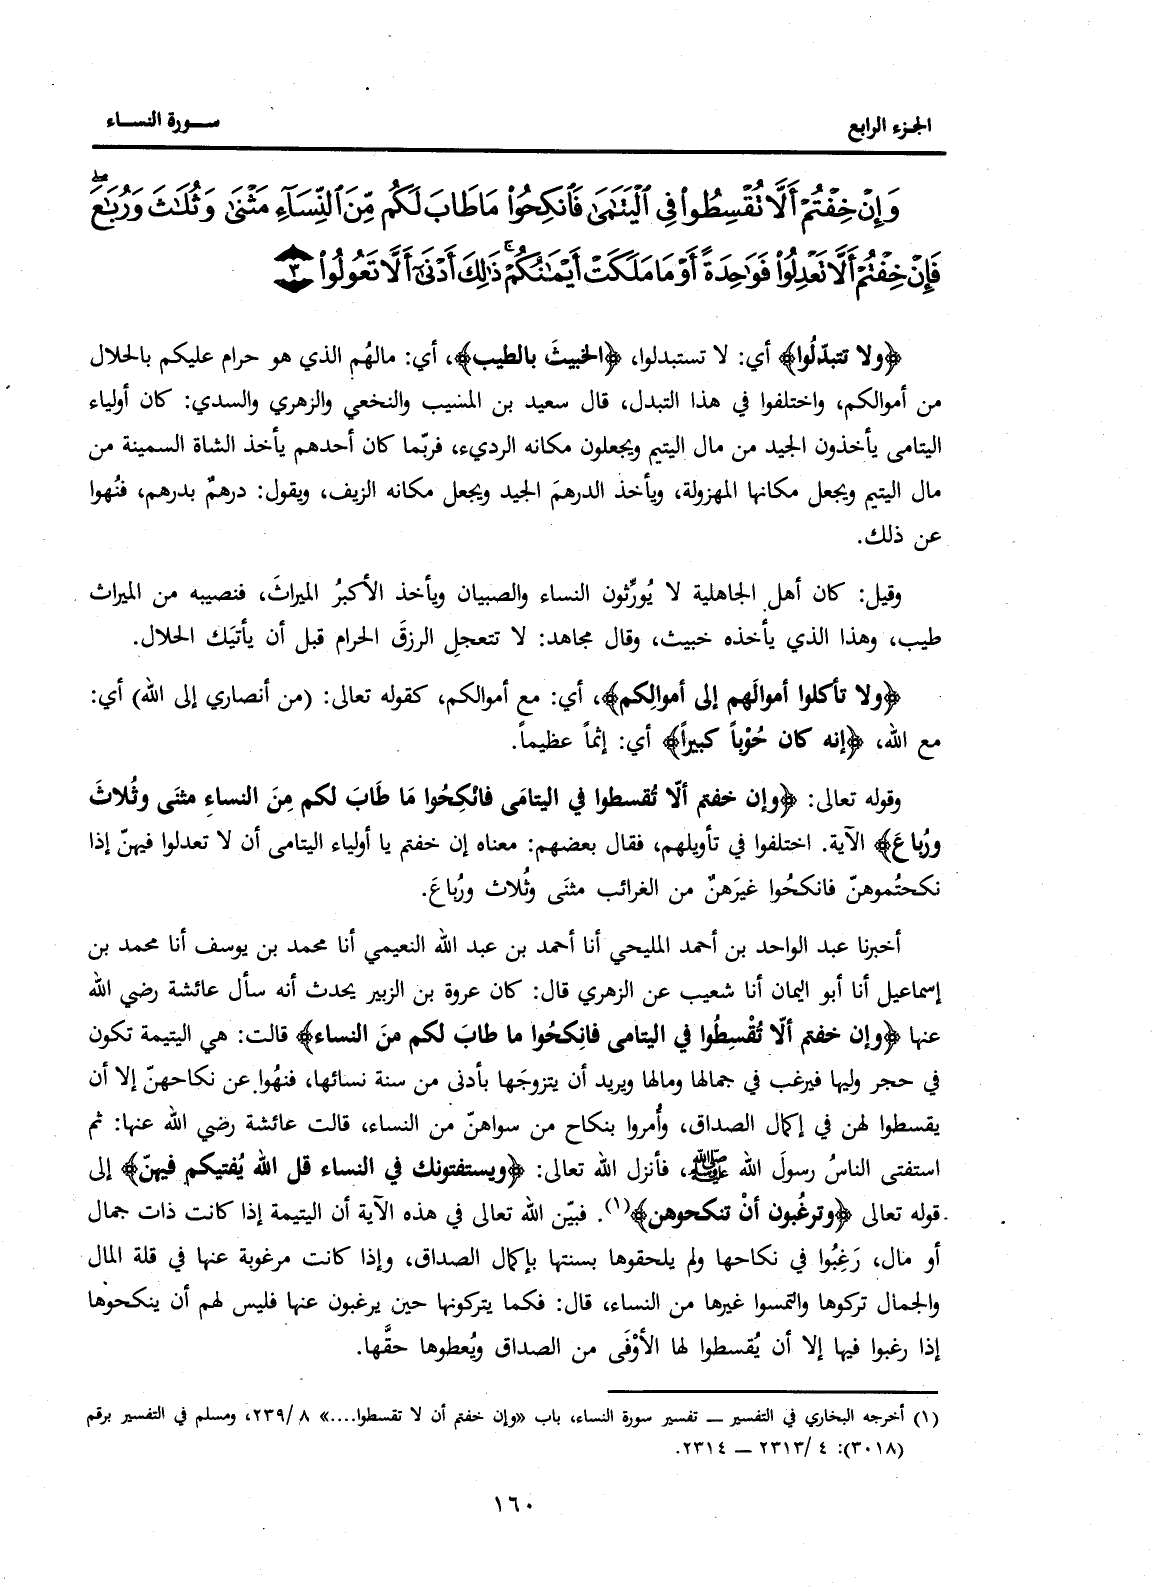 الجزء الرابع
ســورة النســاء
وَإِنْ خِفْتُمْ أَلَّا تُقْسِطُوا۟ فِى ٱلْيَتَٰمَىٰ فَٱنكِحُوا۟ مَا طَابَ لَكُم مِّنَ ٱلنِّسَآءِ مَثْنَىٰ وَثُلَٰثَ وَرُبَٰعَ ۖ
فَإِنْ خِفْتُمْ أَلَّا تَعْدِلُوا۟ فَوَٰحِدَةً أَوْ مَا مَلَكَتْ أَيْمَٰنُكُمْ ۚ ذَٰلِكَ أَدْنَىٰٓ أَلَّا تَعُولُوا۟ ٣
﴿ولا تتبدّلُوا﴾ أي: لا تستبدلوا، ﴿الخبيثَ بالطيب﴾، أي: مالهُم الذي هو حرام عليكم بالحلال
من أموالكم، واختلفوا في هذا التبدل، قال سعيد بن المسَيب والنخعي والزهري والسدي: كان أولياء
اليتامى يأخذون الجيد من مال اليتيم ويجعلون مكانه الرديء، فربّما كان أحدهم يأخذ الشاة السمينة من
مال اليتيم ويجعل مكانها المهزولة، ويأخذ الدرهمَ الجيد ويجعل مكانه الزيف، ويقول: درهمٌ بدرهم، فنُهوا
عن ذلك.
وقيل: كان أهل الجاهلية لا يُورِّثون النساء والصبيان ويأخذ الأكبرُ الميراثَ، فنصيبه من الميراث
طيب، وهذا الذي يأخذه خبيث، وقال مجاهد: لا تتعجلِ الرزقَ الحرام قبل أن يأتيَك الحلال.
﴿ولا تأكلوا أموالَهم إلى أموالِكم﴾، أي: مع أموالكم، كقوله تعالى: (من أنصاري إلى الله) أي:
مع الله، ﴿إنه كان حُوْباً كبيراً﴾ أي: إثماً عظيماً.
وقوله تعالى: ﴿وإن خفتم ألّا تُقسطوا في اليتامَى فانْكِحُوا مَا طَابَ لكم مِنَ النساءِ مثنَى وثُلاثَ
ورُباعَ﴾ الآية. اختلفوا في تأويلهم، فقال بعضهم: معناه إن خفتم يا أولياء اليتامى أن لا تعدلوا فيهنّ إذا
نكحتُموهنّ فانكحُوا غيرَهنّ من الغرائب مثنَى وثُلاث ورُباعَ.
أخبرنا عبد الواحد بن أحمد المليحي أنا أحمد بن عبد الله النعيمي أنا محمد بن يوسف أنا محمد بن
إسماعيل أنا أبو اليمان أنا شعيب عن الزهري قال: كان عروة بن الزبير يحدث أنه سأل عائشة رضي الله
عنها ﴿وإن خفتم ألّا تُقْسِطُوا في اليتامى فانِكحُوا ما طابَ لكم منَ النساء﴾ قالت: هي اليتيمة تكون
في حجر وليها فيرغب في جمالها ومالها ويريد أن يتزوجَها بأدنى من سنة نسائها، فنهُوا عن نكاحهنّ إلا أن
يقسطوا لهن في إكمال الصداق، وأُمروا بنكاح من سواهنّ من النساء، قالت عائشة رضي الله عنها: ثم
استفتى الناسُ رسولَ الله ﷺ، فأنزل الله تعالى: ﴿ويستفتونك في النساء قل الله يُفتيكم فيهنّ﴾ إلى
قوله تعالى ﴿وترغُبون أنْ تنكحوهن﴾(١). فبيّن الله تعالى في هذه الآية أن اليتيمة إذا كانت ذات جمال
أو مال، رَغِبُوا في نكاحها ولم يلحقوها بسنتها بإكمال الصداق، وإذا كانت مرغوبة عنها في قلة المال
والجمال تركوها والتمسوا غيرها من النساء، قال: فكما يتركونها حين يرغبون عنها فليس لهم أن ينكحوها
إذا رغبوا فيها إلا أن يُقسطوا لها الأوْفَى من الصداق ويُعطوها حقَّها.
(١) أخرجه البخاري في التفسير ــ تفسير سورة النساء، باب «وإن خفتم أن لا تقسطوا....» ٨ /٢٣٩، ومسلم في التفسير برقم
(٣٠١٨): ٤ /٢٣١٣ ــ ٢٣١٤.
١٦٠